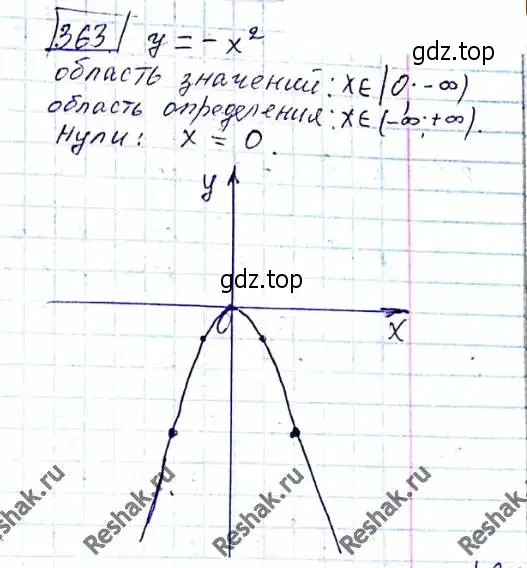 363 y = -x²
gdz.top
область значений: x∈(0; -∞)
область определения: x∈(-∞; +∞).
Нули: x = 0.
y
gdz.top
0
x
Reshak.ru
Reshak.ru
Reshak.ru
Reshak.ru